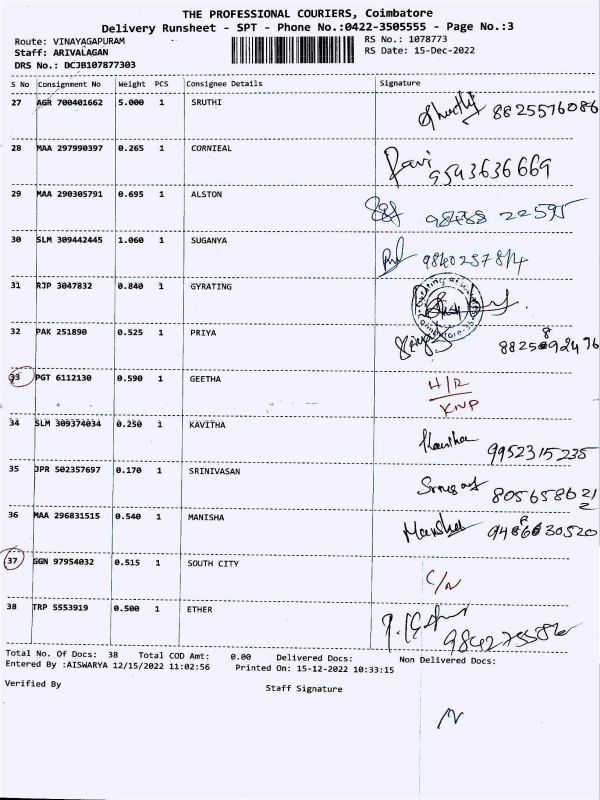 THE PROFESSIONAL COURIERS, Coimbatore
Delivery Runsheet - SPT - Phone No.:0422-3505555 - Page No.:3
Route: VINAYAGAPURAM RS No.: 1078773
Staff: ARIVALAGAN RS Date: 15-Dec-2022
DRS No.: DCJB107877303
S No Consignment No Weight PCS Consignee Details Signature
27 AGR 700401662 5.000 1 SRUTHI Shruthi 8825576086
28 MAA 297990397 0.265 1 CORNIEAL Ravi 9543636669
29 MAA 290305791 0.695 1 ALSTON 22595
30 SLM 309442445 1.060 1 SUGANYA
31 RJP 3047832 0.840 1 GYRATING
32 PAK 251890 0.525 1 PRIYA
33 PGT 6112130 0.590 1 GEETHA H/R
KNP
34 SLM 309374034 0.250 1 KAVITHA Kavitha 9952315235
35 JPR 502357697 0.170 1 SRINIVASAN
36 MAA 296831515 0.540 1 MANISHA Manisha
37 GGN 97954032 0.515 1 SOUTH CITY C/N
38 TRP 5553919 0.500 1 ETHER
Total No. Of Docs: 38 Total COD Amt: 0.00 Delivered Docs: Non Delivered Docs:
Entered By :AISWARYA 12/15/2022 11:02:56 Printed On: 15-12-2022 10:33:15
Verified By Staff Signature